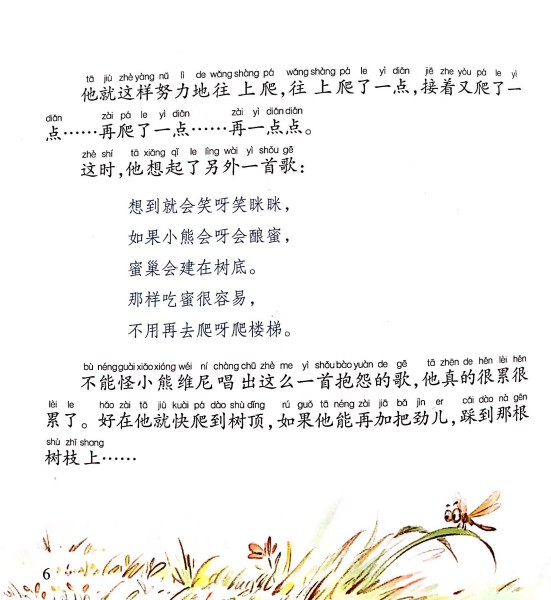 tā jiù zhè yàng nǔ lì de wǎng shàng pá wǎng shàng pá le yì diǎn jiē zhe yòu pá le yì
他就这样努力地往上爬，往上爬了一点，接着又爬了一
diǎn zài pá le yì diǎn zài yì diǎn diǎn
点……再爬了一点……再一点点。
zhè shí tā xiǎng qǐ le lìng wài yì shǒu gē
这时，他想起了另外一首歌：
想到就会笑呀笑眯眯，
如果小熊会呀会酿蜜，
蜜巢会建在树底。
那样吃蜜很容易，
不用再去爬呀爬楼梯。
bù néng guài xiǎo xióng wéi ní chàng chū zhè me yì shǒu bào yuàn de gē tā zhēn de hěn lèi hěn
不能怪小熊维尼唱出这么一首抱怨的歌，他真的很累很
lèi le hǎo zài tā jiù kuài pá dào shù dǐng rú guǒ tā néng zài jiā bǎ jìn er cǎi dào nà gēn
累了。好在他就快爬到树顶，如果他能再加把劲儿，踩到那根
shù zhī shang
树枝上……
6